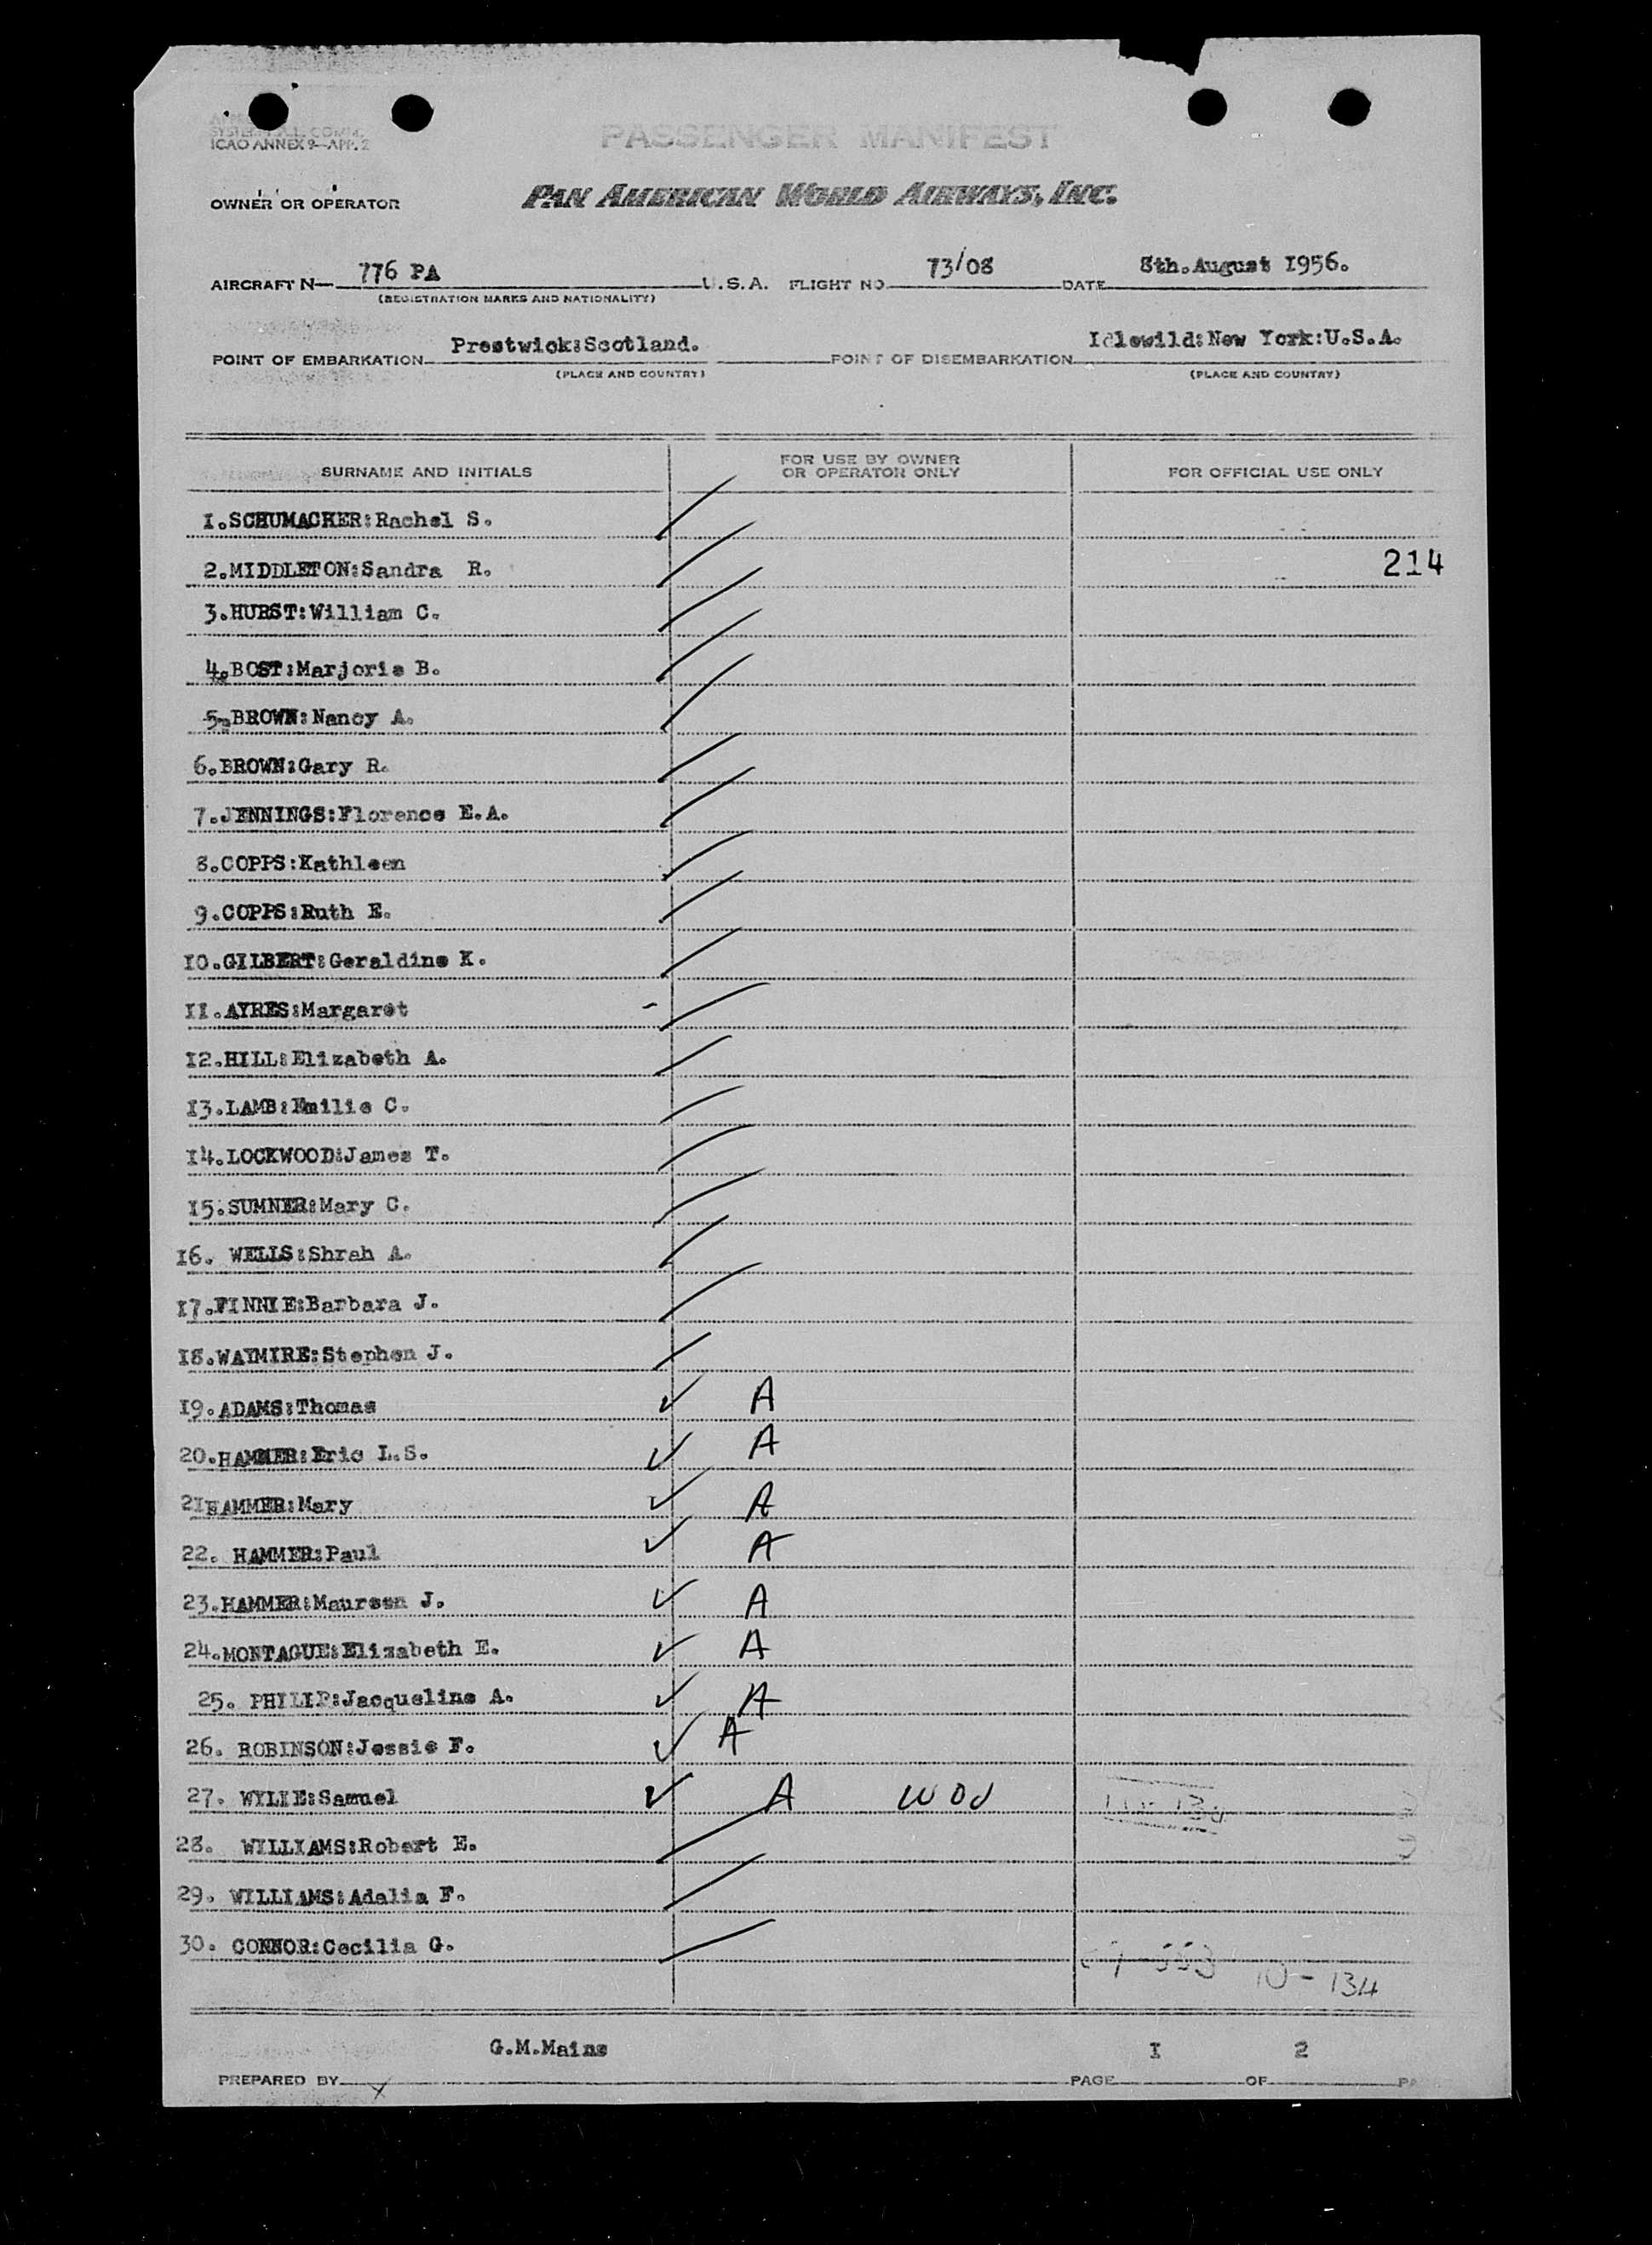 ICAO ANNEX 9—APP. 2
PASSENGER MANIFEST
OWNER OR OPERATOR PAN AMERICAN WORLD AIRWAYS, INC.
AIRCRAFT N— 776 PA U.S.A. FLIGHT NO 73/08 DATE 8th.August 1956.
(REGISTRATION MARKS AND NATIONALITY)
POINT OF EMBARKATION Prestwick:Scotland. POINT OF DISEMBARKATION Idlewild:New York:U.S.A.
(PLACE AND COUNTRY) (PLACE AND COUNTRY)
SURNAME AND INITIALS FOR USE BY OWNER OR OPERATOR ONLY FOR OFFICIAL USE ONLY
1.SCHUMACHER:Rachel S.
2.MIDDLETON:Sandra R. 214
3.HURST:William C.
4.BOST:Marjorie B.
5.BROWN:Nancy A.
6.BROWN:Gary R.
7.JENNINGS:Florence E.A.
8.COPPS:Kathleen
9.COPPS:Ruth E.
10.GILBERT:Geraldine K.
11.AYRES:Margaret
12.HILL:Elizabeth A.
13.LAMB:Emilie C.
14.LOCKWOOD:James T.
15.SUMNER:Mary C.
16. WELLS:Shrah A.
17.FINNIE:Barbara J.
18.WAYMIRE:Stephen J.
19.ADAMS:Thomas ✓ A
20.HAMMER:Eric L.S. ✓ A
21HAMMER:Mary ✓ A
22. HAMMER:Paul ✓ A
23.HAMMER:Maureen J. ✓ A
24.MONTAGUE:Elizabeth E. ✓ A
25. PHILIP:Jacqueline A. ✓ A
26. ROBINSON:Jessie F. ✓ A
27. WYLIE:Samuel ✓ A
28. WILLIAMS:Robert E.
29. WILLIAMS:Adalia F.
30. CONNOR:Cecilia G.
10-134
G.M.Mains I 2
PREPARED BY PAGE OF